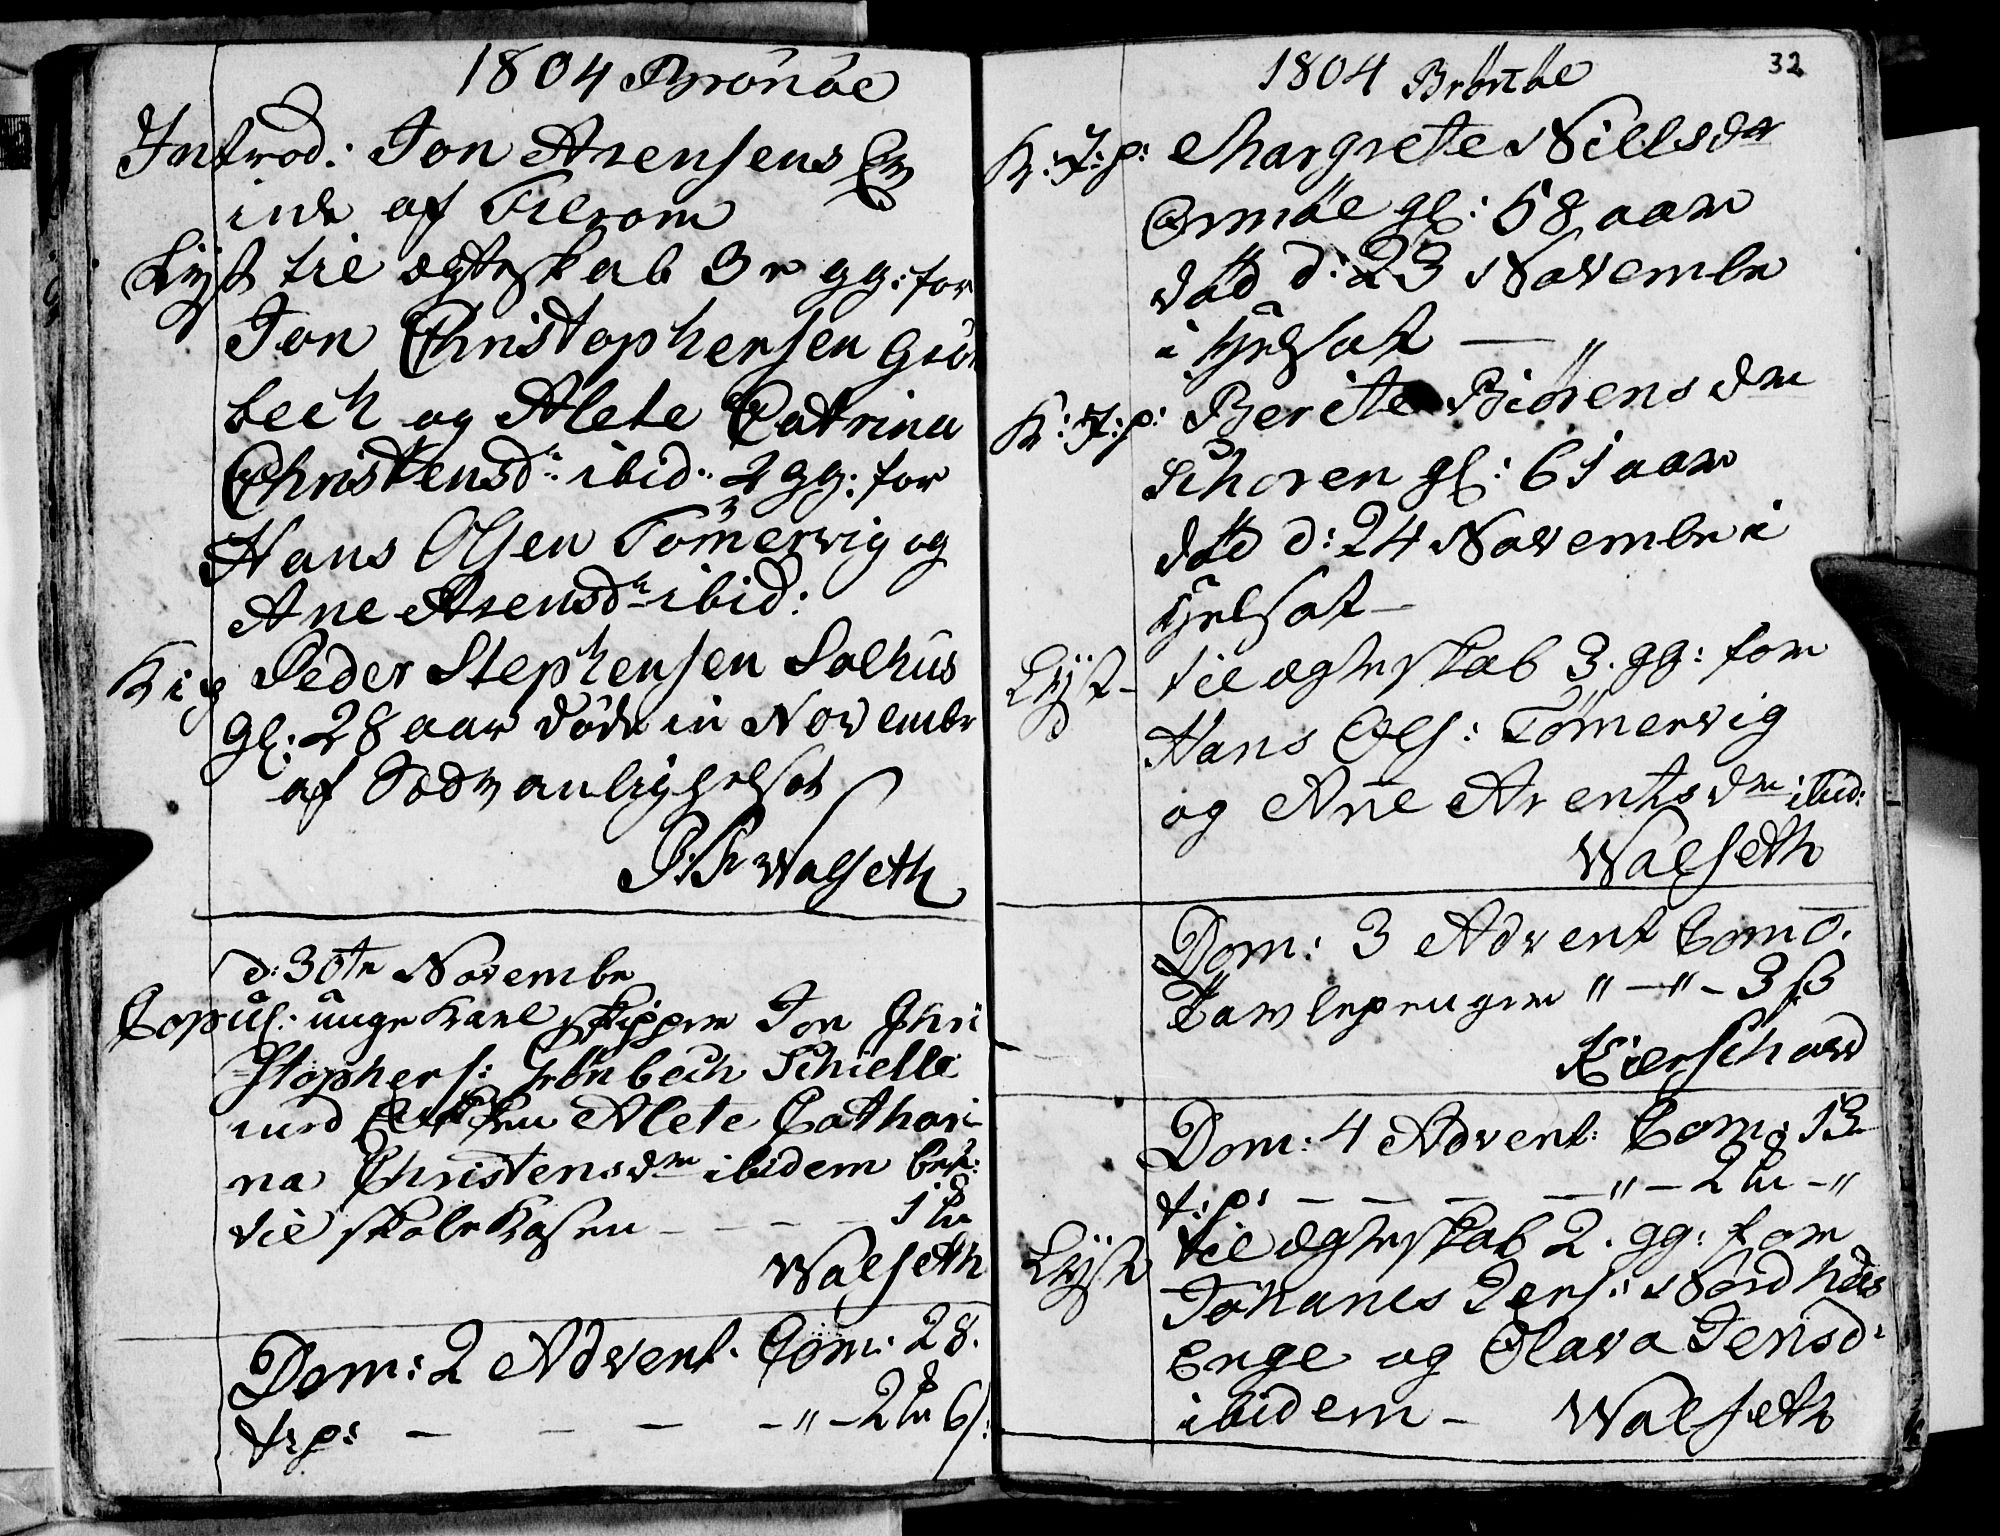 1804 Brönöe
Introd: Jon Arensens Qv
inde af Tilrom
Lyst til ægteskab 3e gg: for
Jon Christophersen Grön
bech og Alete Catrina
Christensdr ibid: 2 gg: for
Hans Olsen Tömervig og
Ane Arensdr ibid:
Peder Stephensen Solhus
gl: 28 aar döde in Novembr
af
Walseth
d: 30te Novembr
Copul: unge Karl skipper Jon Chri
stophers: Grönbech Schielle
med Alete Cathari-
na Christensdr ibidem
til skole Kasen - - - - 1
Walseth
Dom: 2 Advent. Com: 28.
t: p: - - - - " - 2 6 s:
1804 Brönöe
32
K: J: p: Margrete Nillsdr
Ormöe gl: 58 aar
död d: 23 Novembr
i -
K: J: p: Berite Biörensdr
Schoren gl: 61 aar
död d: 24 Novembr i
-
Lyst - til ægteskab 3. gg: for
Hans Ols: Tömervig
og Ane Arentsdr ibid:
Walseth
Dom: 3 Advent Com 0.
Tavlepenger " - " - 3 ß
Kierschow
Dom: 4 Advent: Com: 13
t: p: - - - - " - 2 - "
Lyst til ægteskab 2. gg: for
Johanes Pers: Nordhus
Enge og Olava Jensd:
ibidem - Walseth